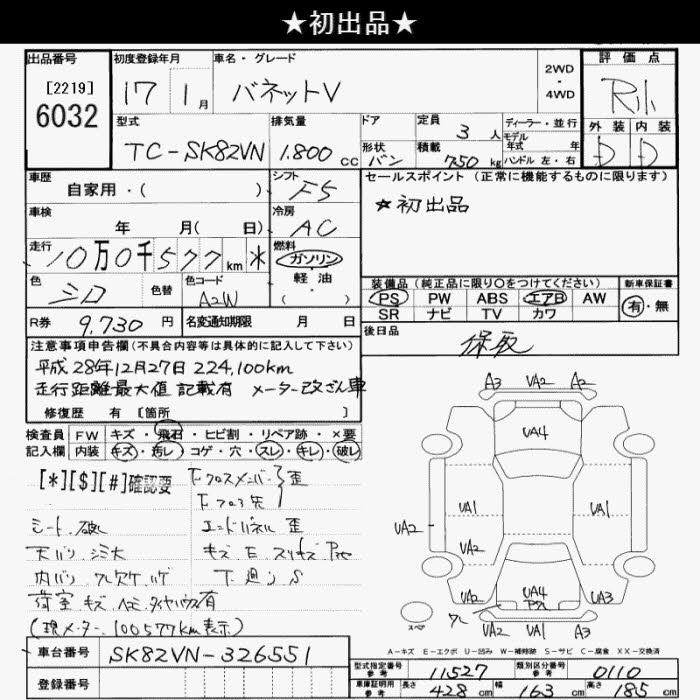 ★初出品★
出品番号 初度登録年月 車名・グレード 2WD・4WD 評価点
[2219] 6032 17 1月 バネットV R小
型式 排気量 ドア 定員 3人 ディーラー・並行 外装 内装
モデル年式 年
TC-SK82VN 1.800cc 形状 バン 積載 750kg ハンドル 左・右 D D
車歴 自家用・( ) シフト F5 セールスポイント(正常に機能するものに限ります)
★初出品
車検 年 月( 日) 冷房 AC
走行 10万0千577km * 燃料 ガソリン・軽油・( )
色 シロ 色替 色コード A2W
装備品(純正品に限り○をつけてください) 新車保証書
PS PW ABS エアB AW 有・無
SR ナビ TV カワ
R券 9,730円 名変通知期限 月 日 後日品
保取
注意事項申告欄(不具合内容等は具体的に記入して下さい)
平成28年12月27日 224,100km
走行距離最大値 記載有 メーター改ざん車
修復歴 有 [箇所 ]
検査員記入欄 FW キズ・飛石・ヒビ割・リペア跡・×要
内装 キズ・汚レ・コゲ・穴・スレ・キレ・破レ
[*][$][#]確認要 Fクロスメンバー 歪
Fフロア先
シート破レ エンドパネル 歪
天バリ シミ大 キズ E スリキズ
内バリ ワレ欠ケ ハゲ 下廻り S
荷室 キズ ヘコミ タイヤハウス有
(現メーター 100577km表示)
A3 VA2 A2
UA4
UA1 UA1
UA2
UA2
UA2 UA4 UA3
ワレ
UA2 UA1 A3
スペア
A-キズ E-エクボ U-凹み W-補修跡 S-サビ C-腐食 XX-交換済
車台番号 SK82VN-326551
登録番号
型式指定番号 参考 11527 類別区分番号 参考 0110
車庫証明用 参考 長さ 428cm 幅 163cm 高さ 185cm